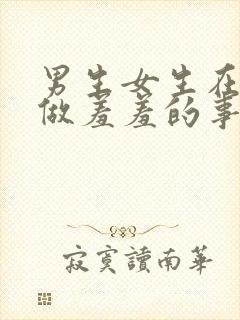 男生女生在
做羞羞的事
寂寞讀南華